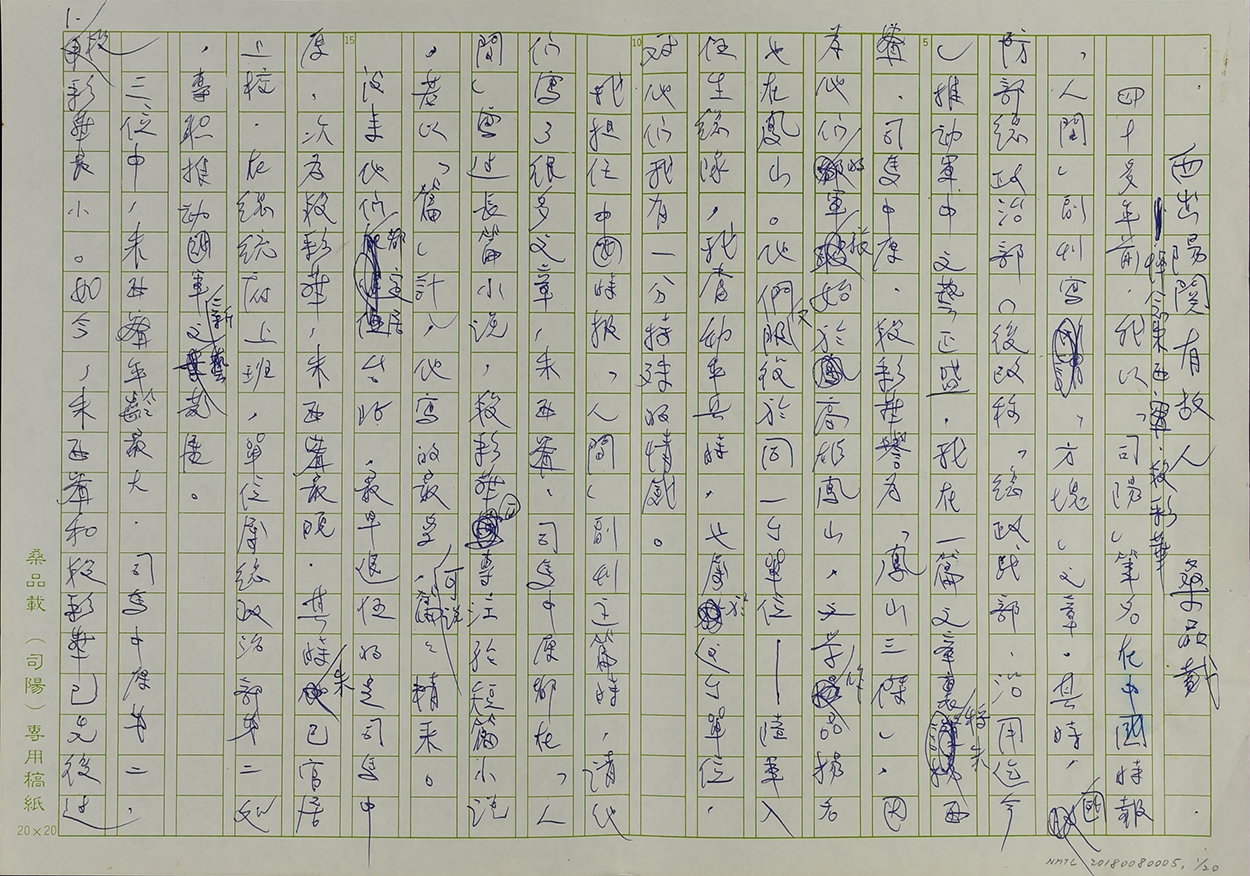 1.
西出陽關有故人 桑品載
悼念朱西甯、段彩華
四十多年前,我以「司陽」筆名在中國時報
「人間」副刊寫「方塊」文章。其時,國
防部總政治部(後改稱「總政戰部」沿用迄今
)推動軍中文藝正盛,我在一篇文章裏將朱西
甯、司馬中原、段彩華譽為「鳳山三傑」,因
為他們的軍旅始於高雄鳳山,文學作品揚名
也在鳳山。他們又服役於同一個單位——陸軍入
伍生總隊,我當幼年兵時,也屬於這個單位,
對他們我有一分特殊的情感。
我担任中國時報「人間」副刊主編時,請他
們寫了很多文章,朱西甯、司馬中原都在「人
間」寫過長篇小說,段彩華則專注於短篇小說
。若以「篇」計,他寫的最多,可說篇之精采。
後來他們都定居台北,最早退伍的是司馬中
原,次為段彩華,朱西甯最晚,其時朱已官居
上校,在總統府上班,單位屬總政治部第二處
,專職推動國軍新文藝發展。
三位中,朱西甯年齡最大,司馬中原第二,
段彩華最小。如今,朱西甯和段彩華已先後過
桑品載(司陽)專用稿紙
20×20
5
10
15
NMTL 20180080005, 1/20